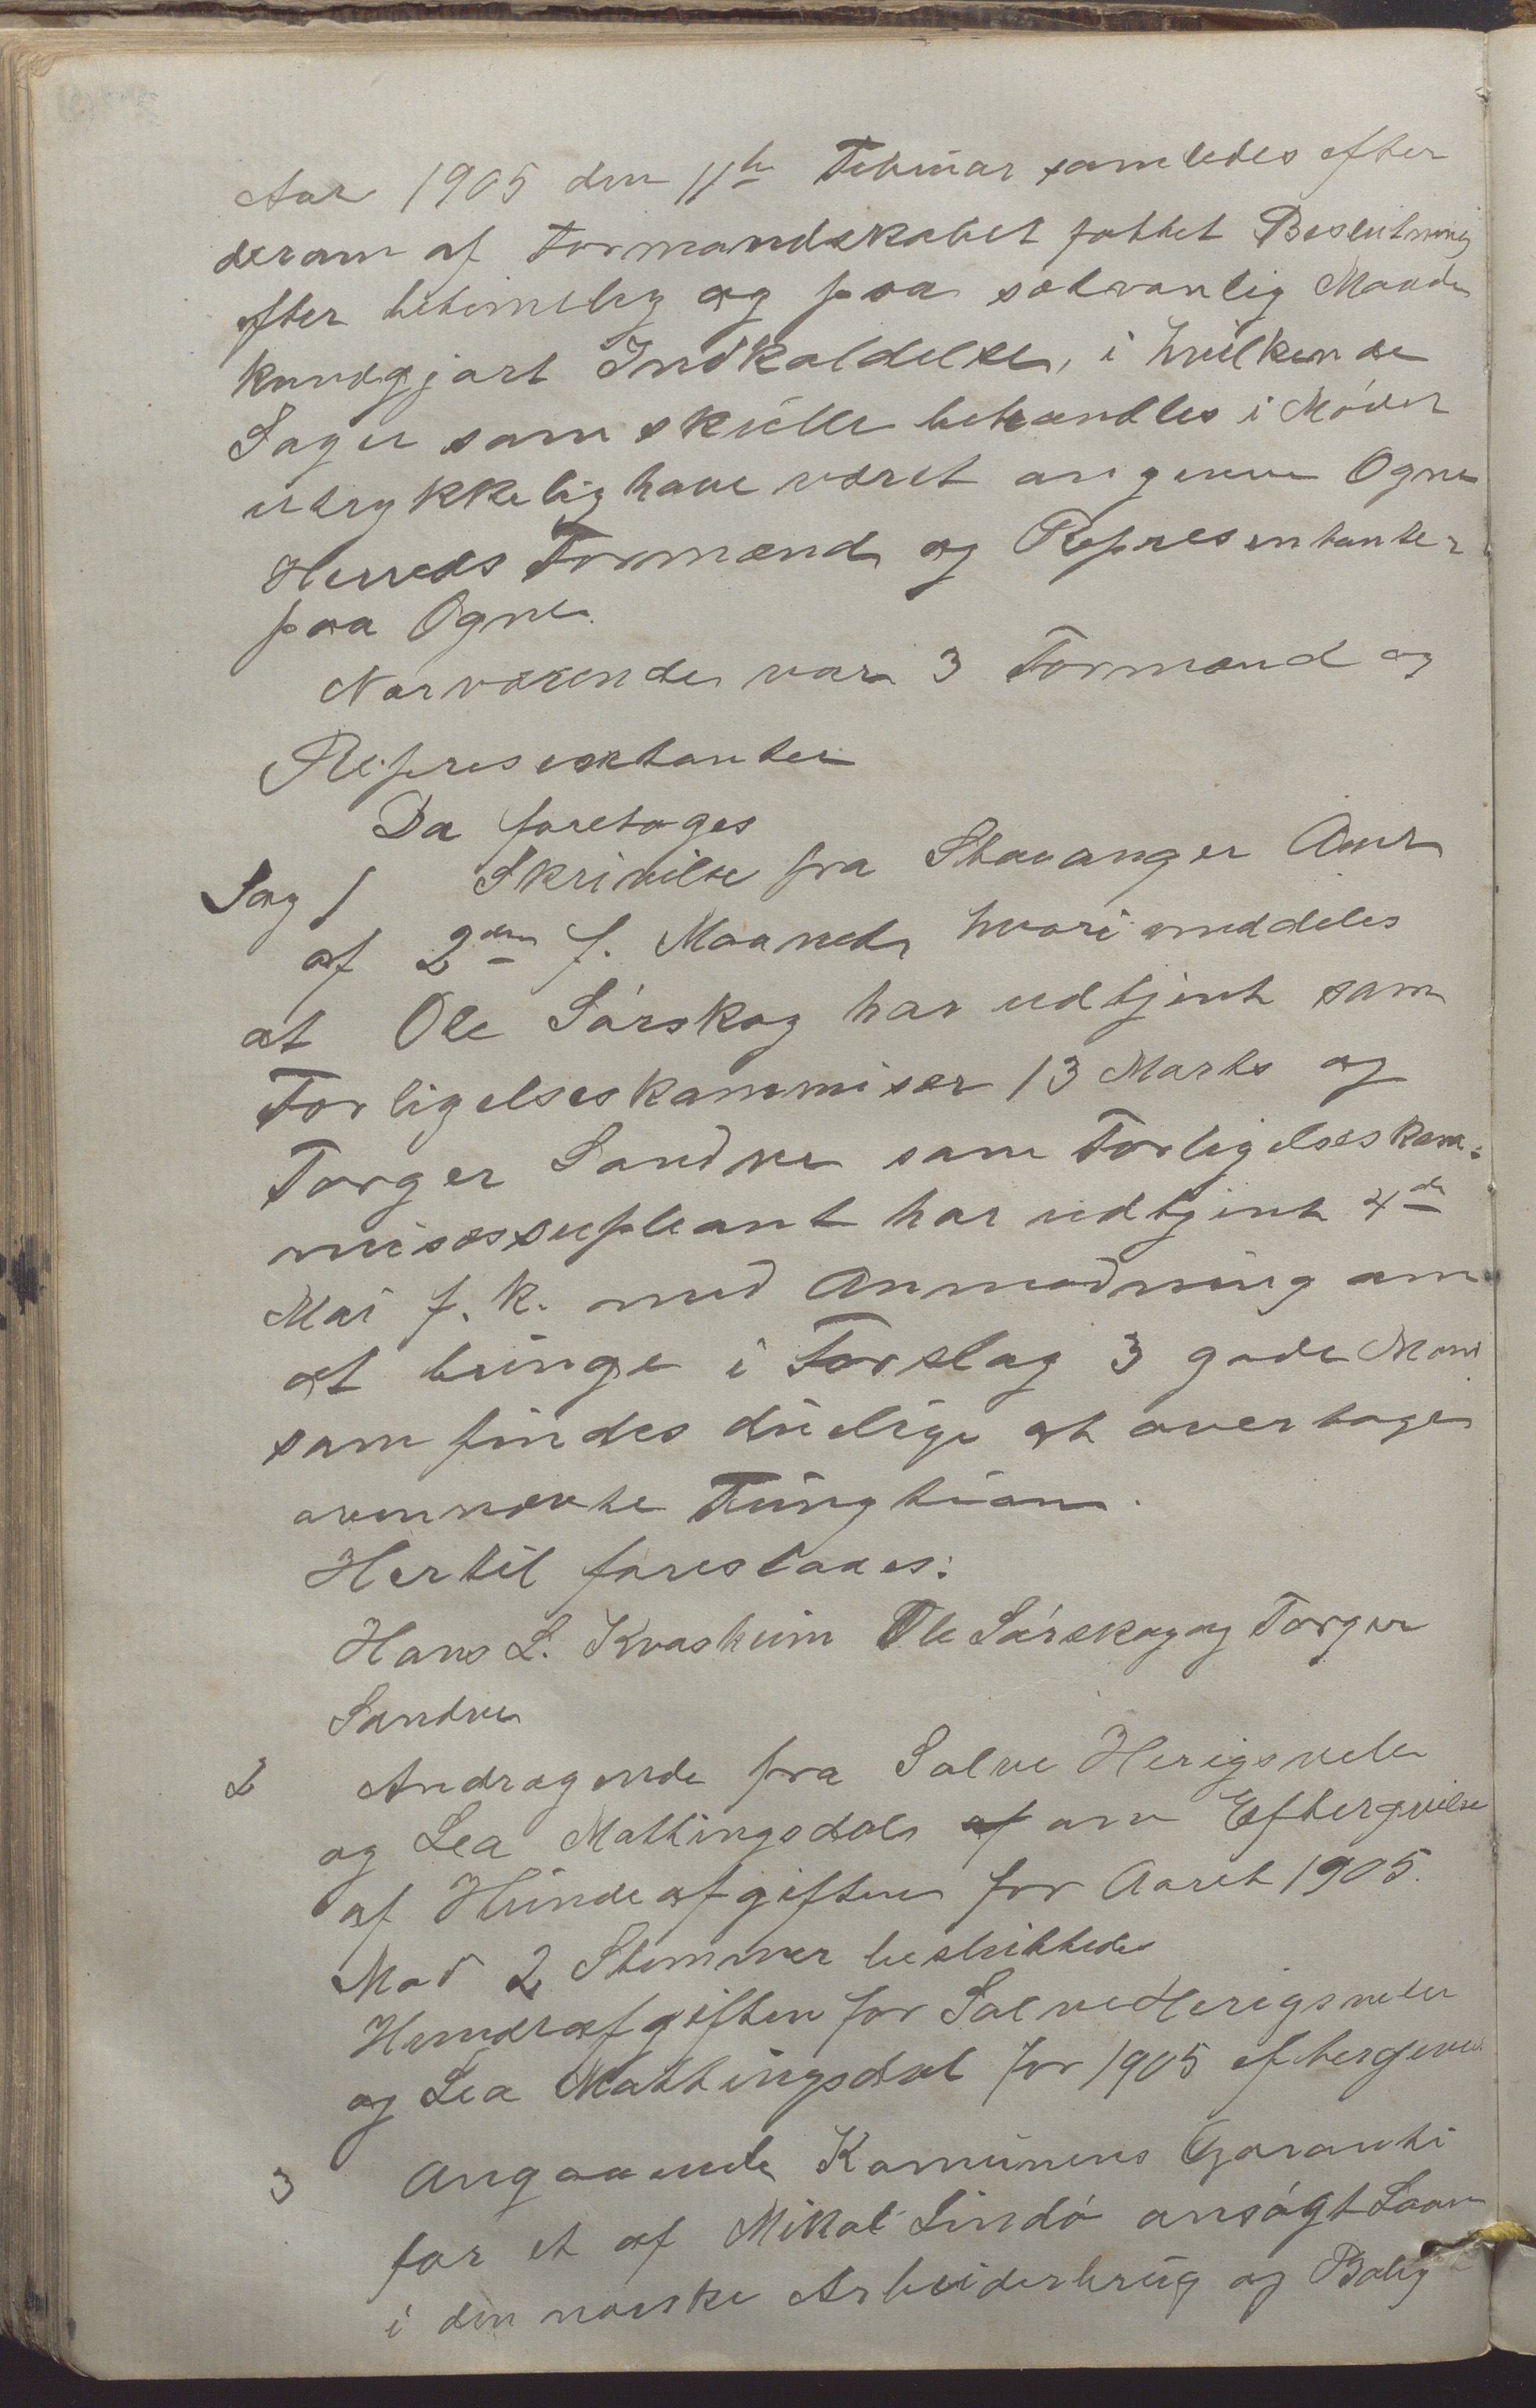 Aar 1905 den 11te Februar samledes efter
derom af Formandskabet fattet Beslutning
efter betimelig og paa sedvanlig Maade
kundgjort Indkaldelse, i hvilken de
Sager som skulle behandles i Mödet
utrykkelig have været angivne Ogne
Herreds Formænd og Representanter
paa Ogne.
Nærværende var 3 Formænd og
Representanter
Da foretoges
Sag 1 Skrivelse fra Stavanger Amt
af 2den f. Maaned, hvori meddeles
at Ole Sörskog har udtjent som
Forligelseskommisær 13 Marts og
Torger Sandve som Forligelseskom-
misæssupleant har udtjent 4de
Mai f. k. med Anmodning om
at bringe i Forslag 3 gode Mænd
som findes duelige at overtage
ovennævte Fungtion.
Hertil foreslaaes:
Hans L. Kvasheim Ole Sörskog og Torger
Sandve
2 Andragende fra Salve Herigsveler
og Lea Mattingsdal af om Eftergivelse
af Hundeafgiften for Aaret 1905.
Mod 2 Stemmer besluttedes
Hundeafgiften for Salve Herigsveler
og Lea Mattingsdal for 1905 eftergives.
3 Angaaende Komunens Garanti
for et af Mikal Lindö ansögt Laan
i den norske Arbeiderbrug og Bolig